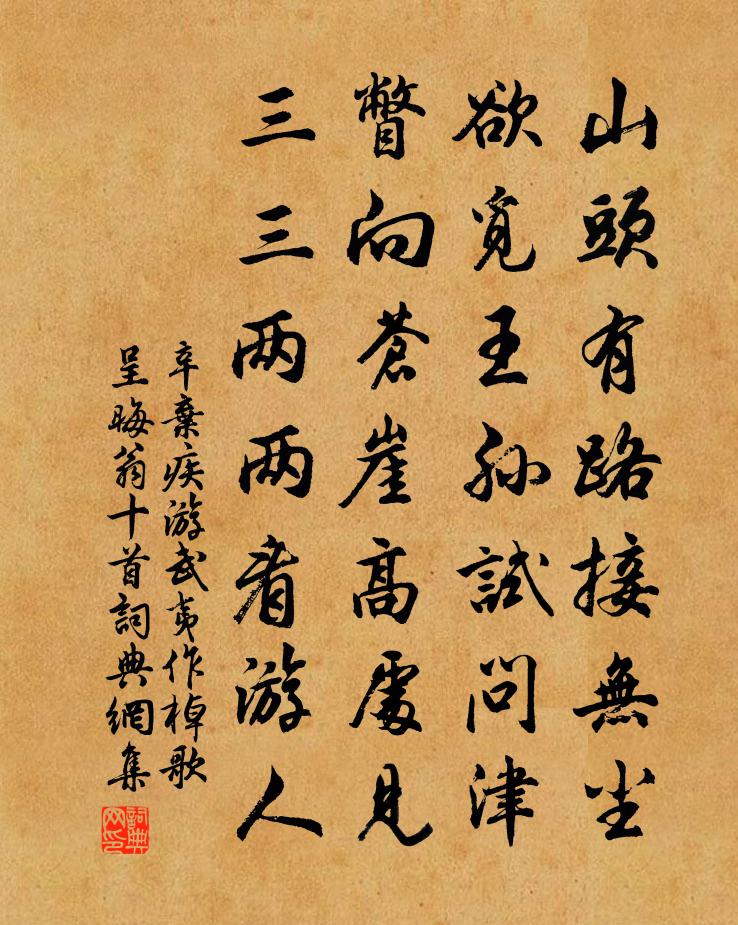 山頭有路接無尘
欲覓王孫試問津
瞥向蒼崖高處見
三三两两看游人
辛棄疾游武夷作棹歌
呈晦翁十首詞典網集
詞典
网印